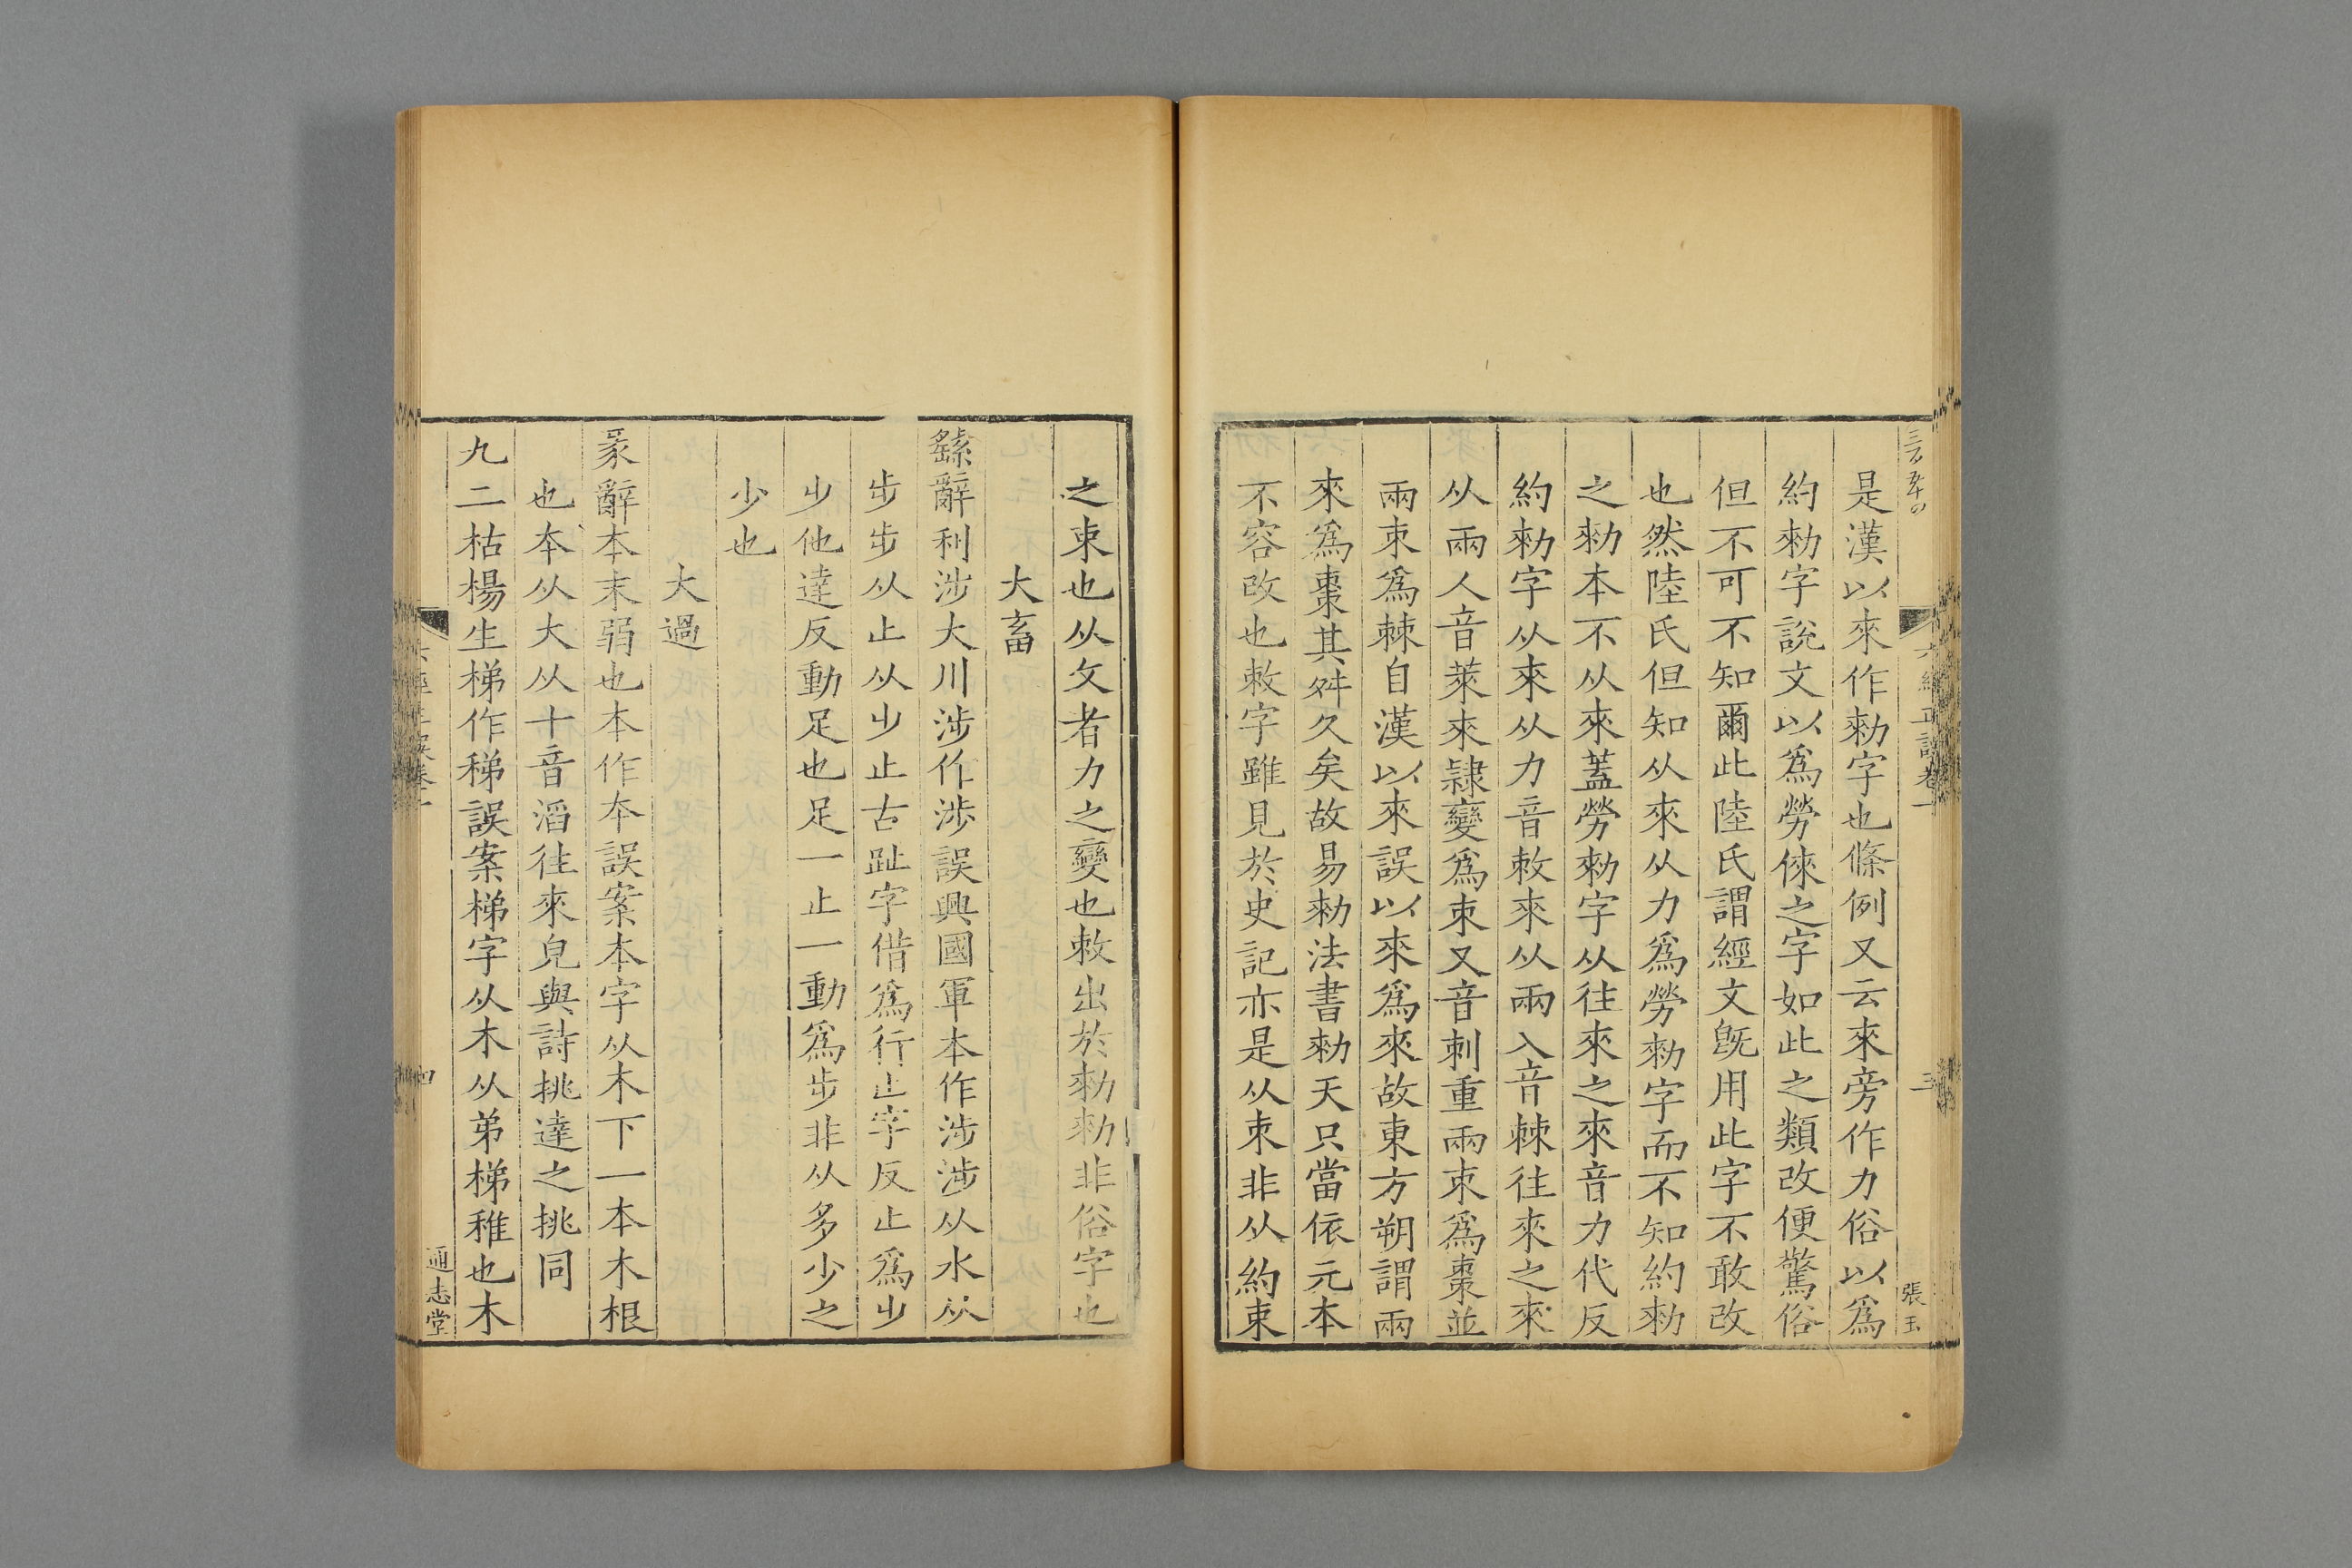 六經正誤卷一
三
張玉
是漢以來作勑字也條例又云來旁作力俗以爲
約勑字說文以爲勞倈之字如此之類改便驚俗
但不可不知爾此陸氏謂經文旣用此字不敢改
也然陸氏但知从來从力爲勞勑字而不知約勑
之勑本不从來蓋勞勑字从往來之來音力代反
約勑字从來从力音敕來从兩入音棘往來之來
从兩人音萊來隷變爲朿又音刺重兩朿爲棗並
兩朿爲棘自漢以來誤以來爲來故東方朔謂兩
來爲棗其舛久矣故易勑法書勑天只當依元本
不容改也敕字雖見於史記亦是从朿非从約束
之束也从攵者力之變也敕出於勑勑非俗字也
大畜
繇辭利涉大川涉作渉誤興國軍本作涉涉从水从
步步从止从少止古趾字借爲行止字反止爲少
少他達反動足也足一止一動爲步非从多少之
少也
大過
彖辭本末弱也本作夲誤案本字从木下一本木根
也夲从大从十音滔往來皃與詩挑達之挑同
九二枯楊生梯作稊誤案梯字从木从弟梯稚也木
六經正誤卷一
四
通志堂